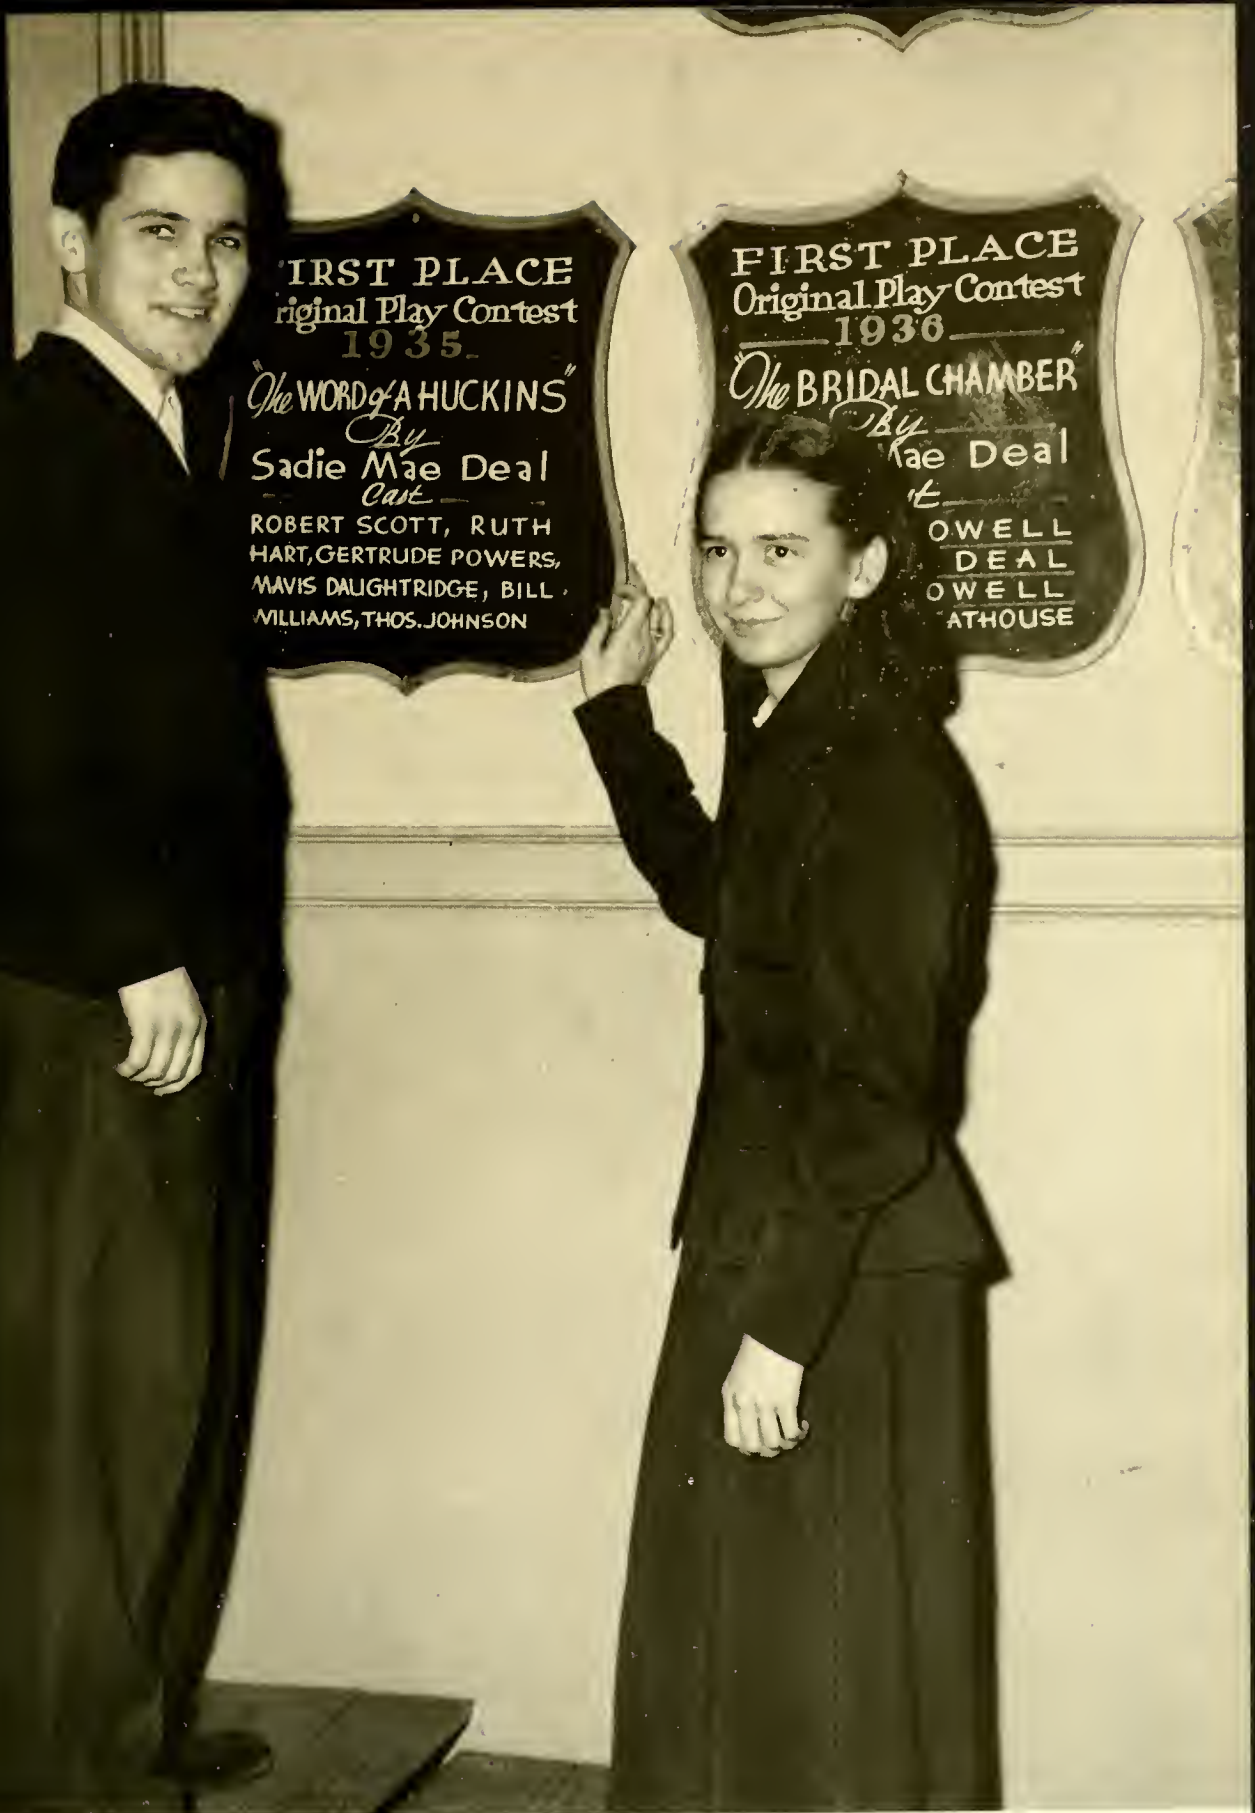 IRST PLACE
riginal Play Contest
1935
"The WORD of A HUCKINS"
By
Sadie Mae Deal
Cast
ROBERT SCOTT, RUTH
HART, GERTRUDE POWERS,
MAVIS DAUGHTRIDGE, BILL
WILLIAMS, THOS. JOHNSON
FIRST PLACE
Original Play Contest
1936
"The BRIDAL CHAMBER"
By
Mae Deal
t
OWELL
DEAL
OWELL
ATHOUSE